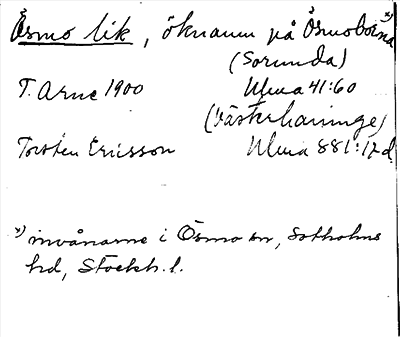 Ösmo lik, öknamn på Ösmoborna *)
(Sorunda)
T. Arne 1900 Ulma 41:60
(Västerhaninge)
Torsten Ericsson Ulma 881:12 d.
*) invånarne i Ösmo sn, Sotholms
hd, Stockh. l.